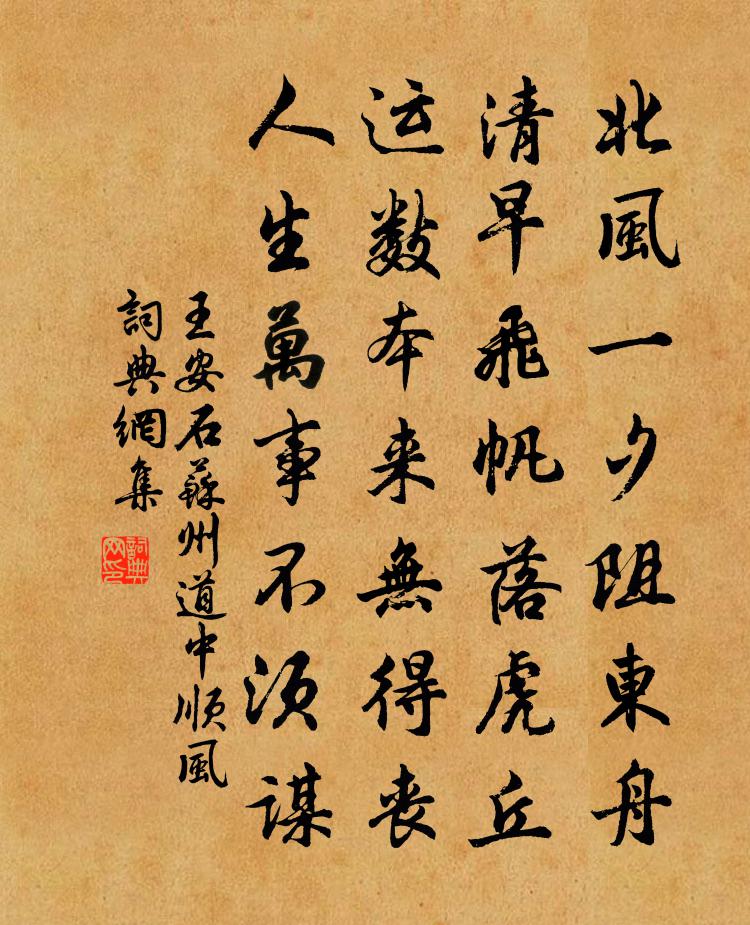 北風一夕阻東舟
清早飛帆落虎丘
运数本来無得丧
人生萬事不須謀
王安石蘇州道中順風
詞典網集
詞典網印